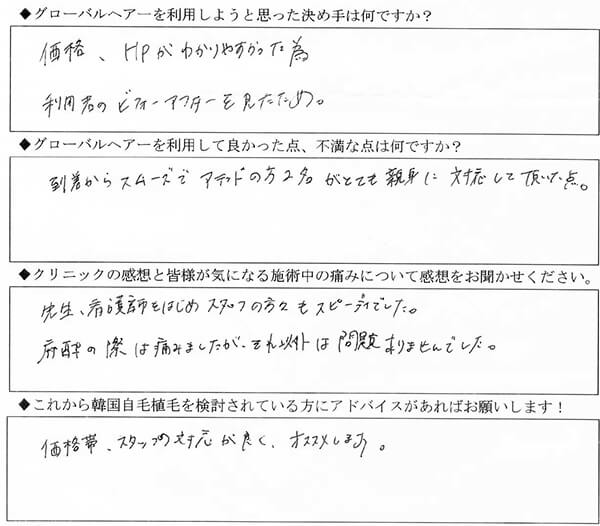 ◆グローバルヘアーを利用しようと思った決め手は何ですか？
価格、HPがわかりやすかった為
利用者のビフォーアフターを見たため。
◆グローバルヘアーを利用して良かった点、不満な点は何ですか？
到着からスムーズでアテンドの方2名がとても親身に対応して頂いた点。
◆クリニックの感想と皆様が気になる施術中の痛みについて感想をお聞かせください。
先生、看護師をはじめスタッフの方々もスピーディでした。
麻酔の際は痛みましたが、それ以外は問題ありませんでした。
◆これから韓国自毛植毛を検討されている方にアドバイスがあればお願いします！
価格帯、スタッフの対応が良く、オススメします。